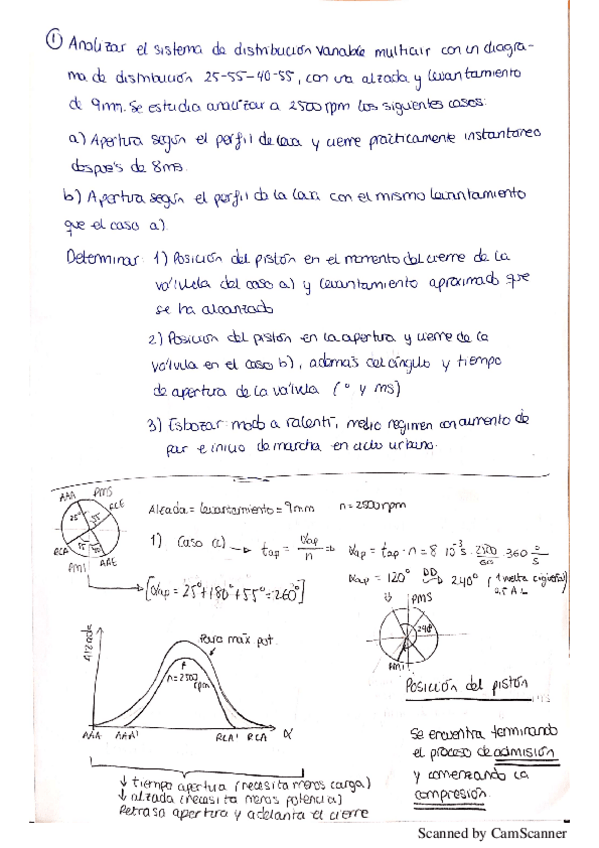 ① Analizar el sistema de distribución variable multiair con un diagra-
ma de distribución 25-55-40-55, con una alzada y levantamiento
de 9mm. Se estudia analizar a 2500 rpm los siguientes casos:
a) Apertura según el perfil de leva y cierre prácticamente instantáneo
después de 8ms.
b) Apertura según el perfil de la leva con el mismo levantamiento
que el caso a).
Determinar: 1) Posición del pistón en el momento del cierre de la
válvula del caso a) y levantamiento aproximado que
se ha alcanzado
2) Posición del pistón en la apertura y cierre de la
válvula en el caso b), además del ángulo y tiempo
de apertura de la válvula (° y ms)
3) Esbozar: modo a ralentí, medio regimen con aumento de
par e inicio de marcha en ciclo urbano.
AAA PMS RCE
25° 55
RCA 55 40 AAE
PMI
Alzada = levantamiento = 9mm n = 2500 rpm
1) Caso a) → tap = αap/n ⇒ αap = tap · n = 8 · 10⁻³ s · 2500/60s · 360 °/s
αap = 120° DD→ 240° (1 vuelta cigüeñal)
0,5 A L
→ [αap = 25° + 180° + 55° = 260°]
PMS
240°
PMI
Posición del pistón
Alzada
Para máx pot.
n = 2500 rpm
AAA AAA' RCA' RCA α
Se encuentra terminando
el proceso de admisión
y comenzando la
compresión.
↓ tiempo apertura (necesita menos carga)
↓ alzada (necesita menos potencia)
Retrasa apertura y adelanta el cierre
Scanned by CamScanner